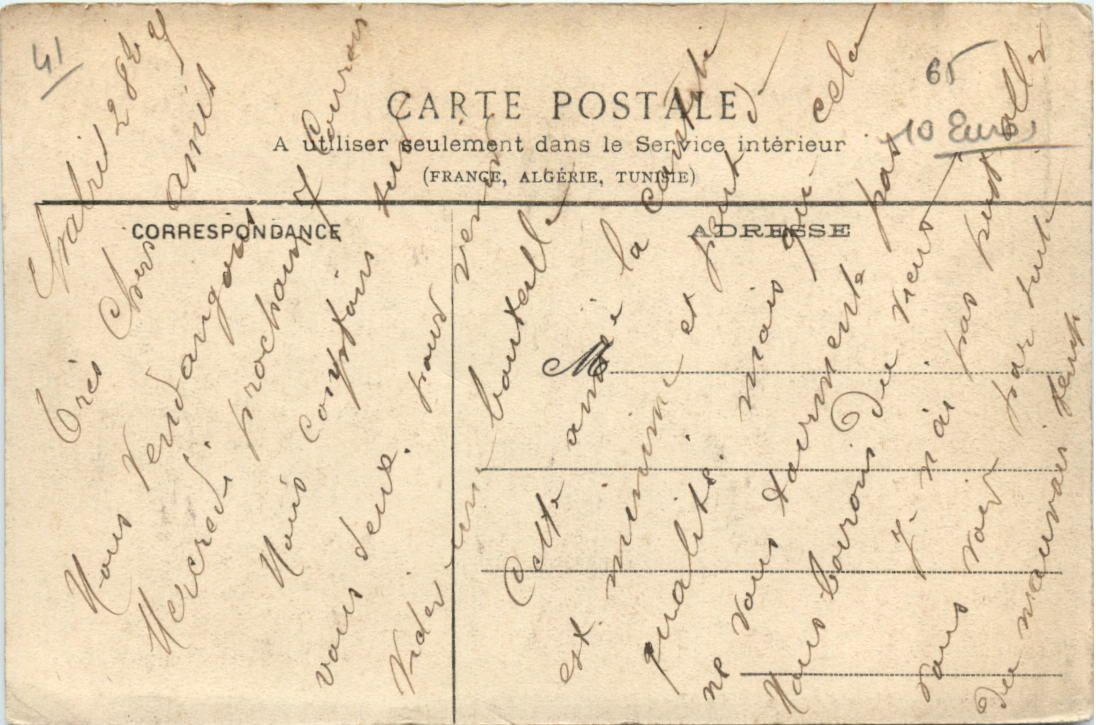 41
65
10 Euro
CARTE POSTALE
A utiliser seulement dans le Service intérieur
(FRANCE, ALGÉRIE, TUNISIE)
CORRESPONDANCE
ADRESSE
M
28
Très Chers amis
Nous Vendangeons
Mercredi prochain
Nous comptons sur
vous deux. pour venir
vider une bouteille
Cette année la quantité
est minime et peut d
qualité. mais que cela
ne vous tourmente pas
Nous boirons du vieux
J. n'ai pas put aller
vous voir par suite
du mauvais temps